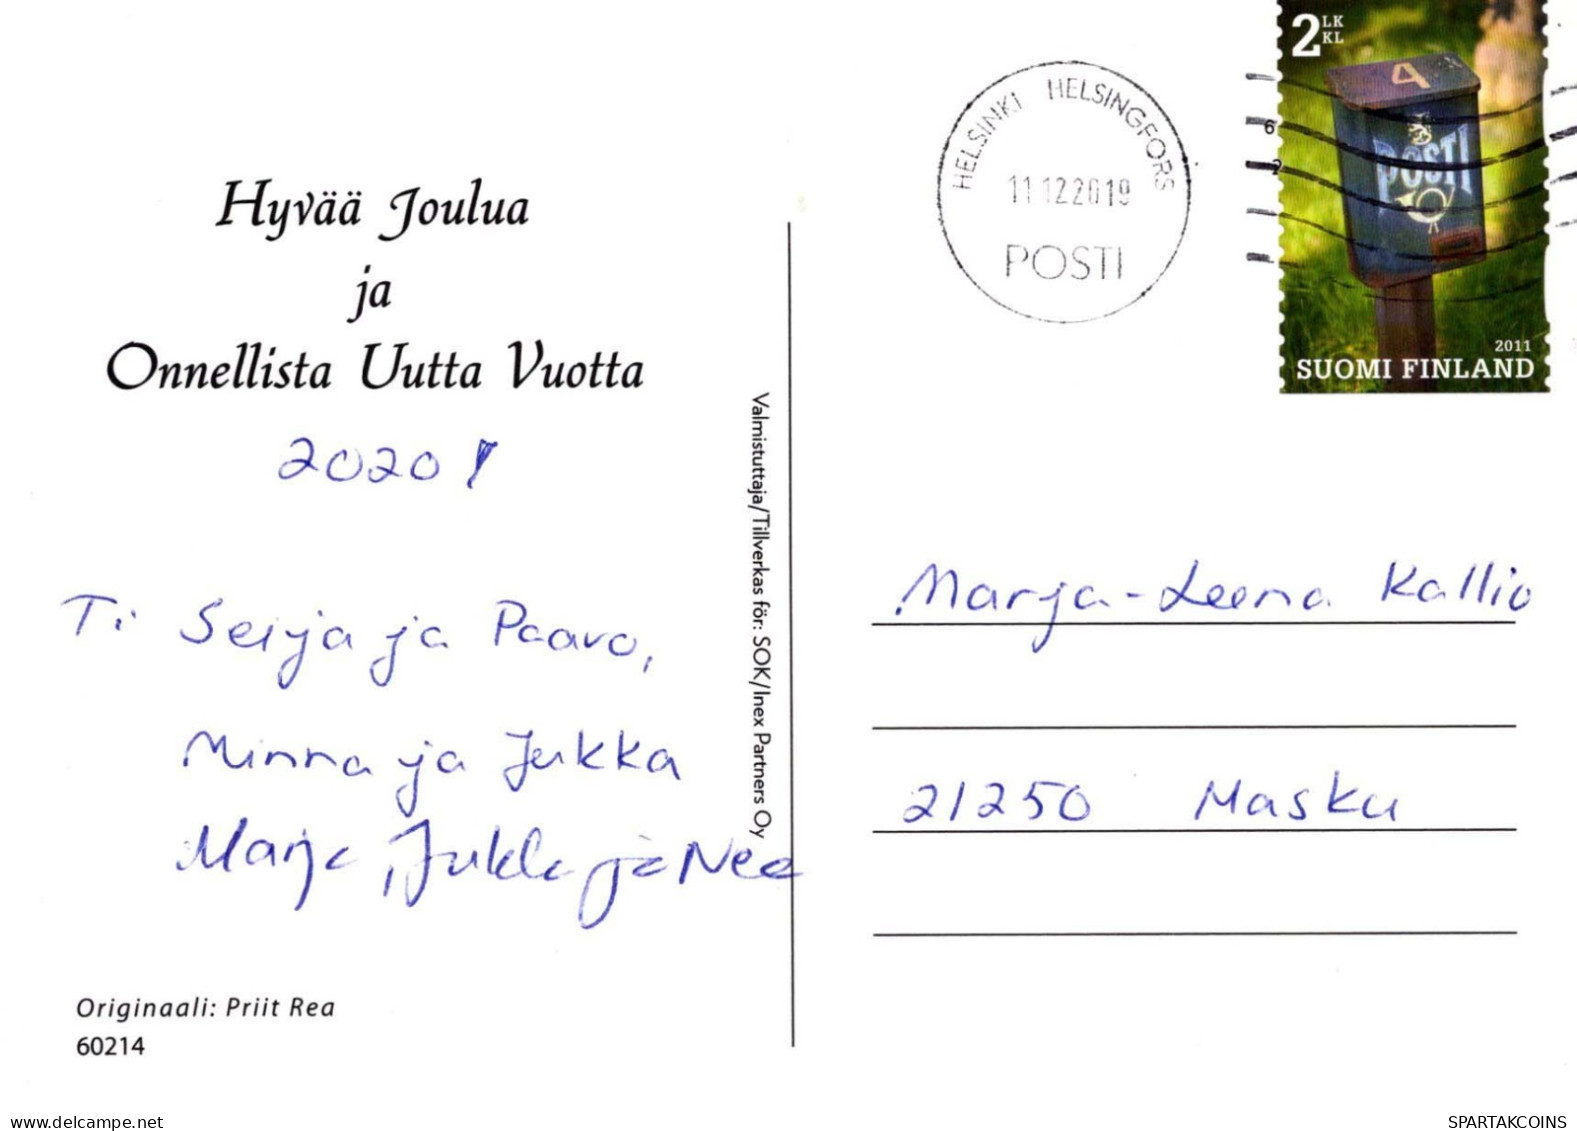 Hyvää Joulua
ja
Onnellista Uutta Vuotta
2020!
Ti Seija ja Paavo,
Minna ja Jukka
Marja, Jukka ja Nea
Originaali: Priit Rea
60214
Valmistuttaja/Tillverkas för: SOK/Inex Partners Oy
HELSINKI HELSINGFORS
11.12.2019
POSTI
2 LK
KL
4
POSTI
2011
SUOMI FINLAND
Marja-Leena Kallio
21250 Masku
delcampe.net
SPARTAKCOINS